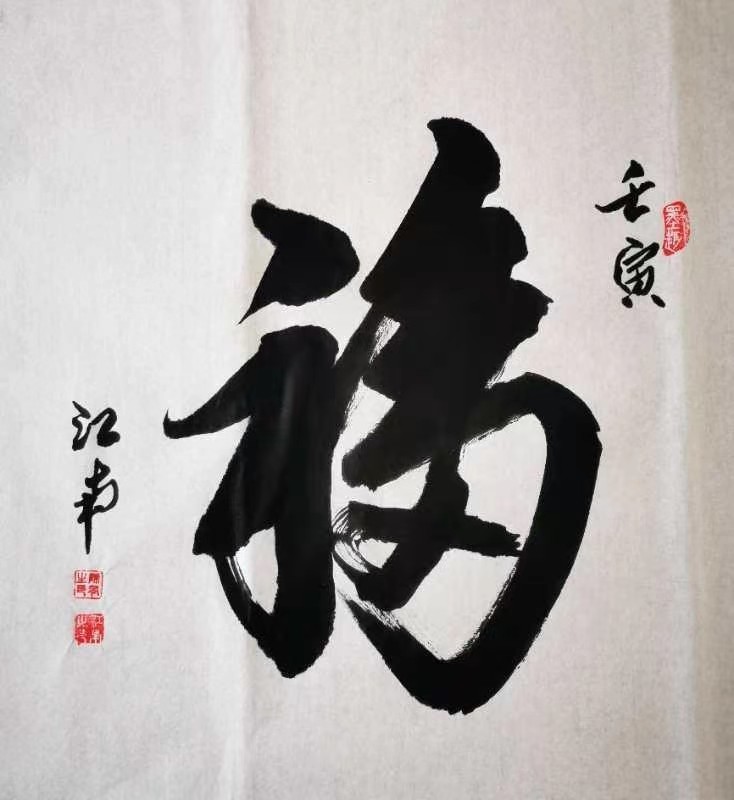 壬寅
福
江南